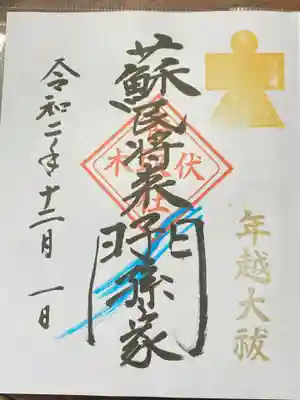 年越大祓
蘇民将来子孫家門
伏木
社
令和二年十二月一日